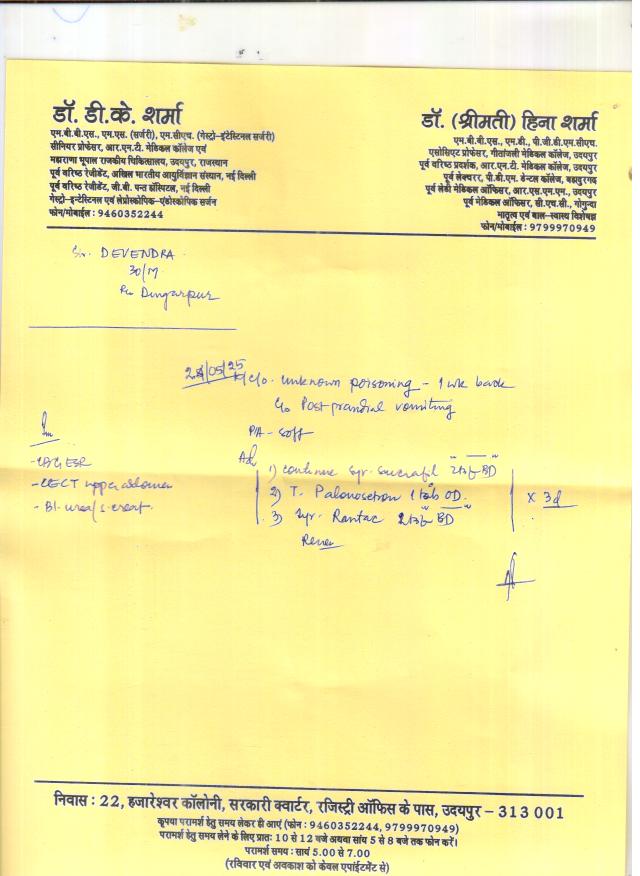 डॉ. डी.के. शर्मा
एम.बी.बी.एस., एम.एस. (सर्जरी), एम.सीएच. (गेस्ट्रो-इंटेस्टिनल सर्जरी)
सीनियर प्रोफेसर, आर.एन.टी. मेडिकल कॉलेज एवं
महाराणा भूपाल राजकीय चिकित्सालय, उदयपुर, राजस्थान
पूर्व वरिष्ठ रेजीडेंट, अखिल भारतीय आयुर्विज्ञान संस्थान, नई दिल्ली
पूर्व वरिष्ठ रेजीडेंट, जी.बी. पन्त हॉस्पिटल, नई दिल्ली
गेस्ट्रो-इन्टेस्टिनल एवं लेप्रोस्कोपिक-एंडोस्कोपिक सर्जन
फोन/मोबाईल : 9460352244
डॉ. (श्रीमती) हिना शर्मा
एम.बी.बी.एस., एम.डी., पी.जी.डी.एम.सीएच.
एसोसिएट प्रोफेसर, गीतांजली मेडिकल कॉलेज, उदयपुर
पूर्व वरिष्ठ प्रदर्शक, आर.एन.टी. मेडिकल कॉलेज, उदयपुर
पूर्व लेक्चरर, पी.डी.एम. डेन्टल कॉलेज, बहादुरगढ़
पूर्व लेडी मेडिकल ऑफिसर, आर.एस.एम.एम., उदयपुर
पूर्व मेडिकल ऑफिसर, सी.एच.सी., गोगुन्दा
मातृत्व एवं बाल-स्वास्थ्य विशेषज्ञ
फोन/मोबाईल : 9799970949
Sr. DEVENDRA
30/M
Dungarpur
/05/25 c/o. unknown poisoning - 1 wk back
c/o Post prandial vomiting
P/A - soft
- CBC, ESR
- CECT upper abdomen
- Bl. urea/s. creat.
Adv
1) Continue Syr. Sucrafil 2tsf BD
2) T. Palonosetron 1 tab OD.
3) Syr. Rantac 2tsf BD
x 3d
निवास : 22, हजारेश्वर कॉलोनी, सरकारी क्वार्टर, रजिस्ट्री ऑफिस के पास, उदयपुर – 313 001
कृपया परामर्श हेतु समय लेकर ही आएं (फोन : 9460352244, 9799970949)
परामर्श हेतु समय लेने के लिए प्रातः 10 से 12 बजे अथवा सांय 5 से 8 बजे तक फोन करें।
परामर्श समय : सायं 5.00 से 7.00
(रविवार एवं अवकाश को केवल एपांईटमेंट से)